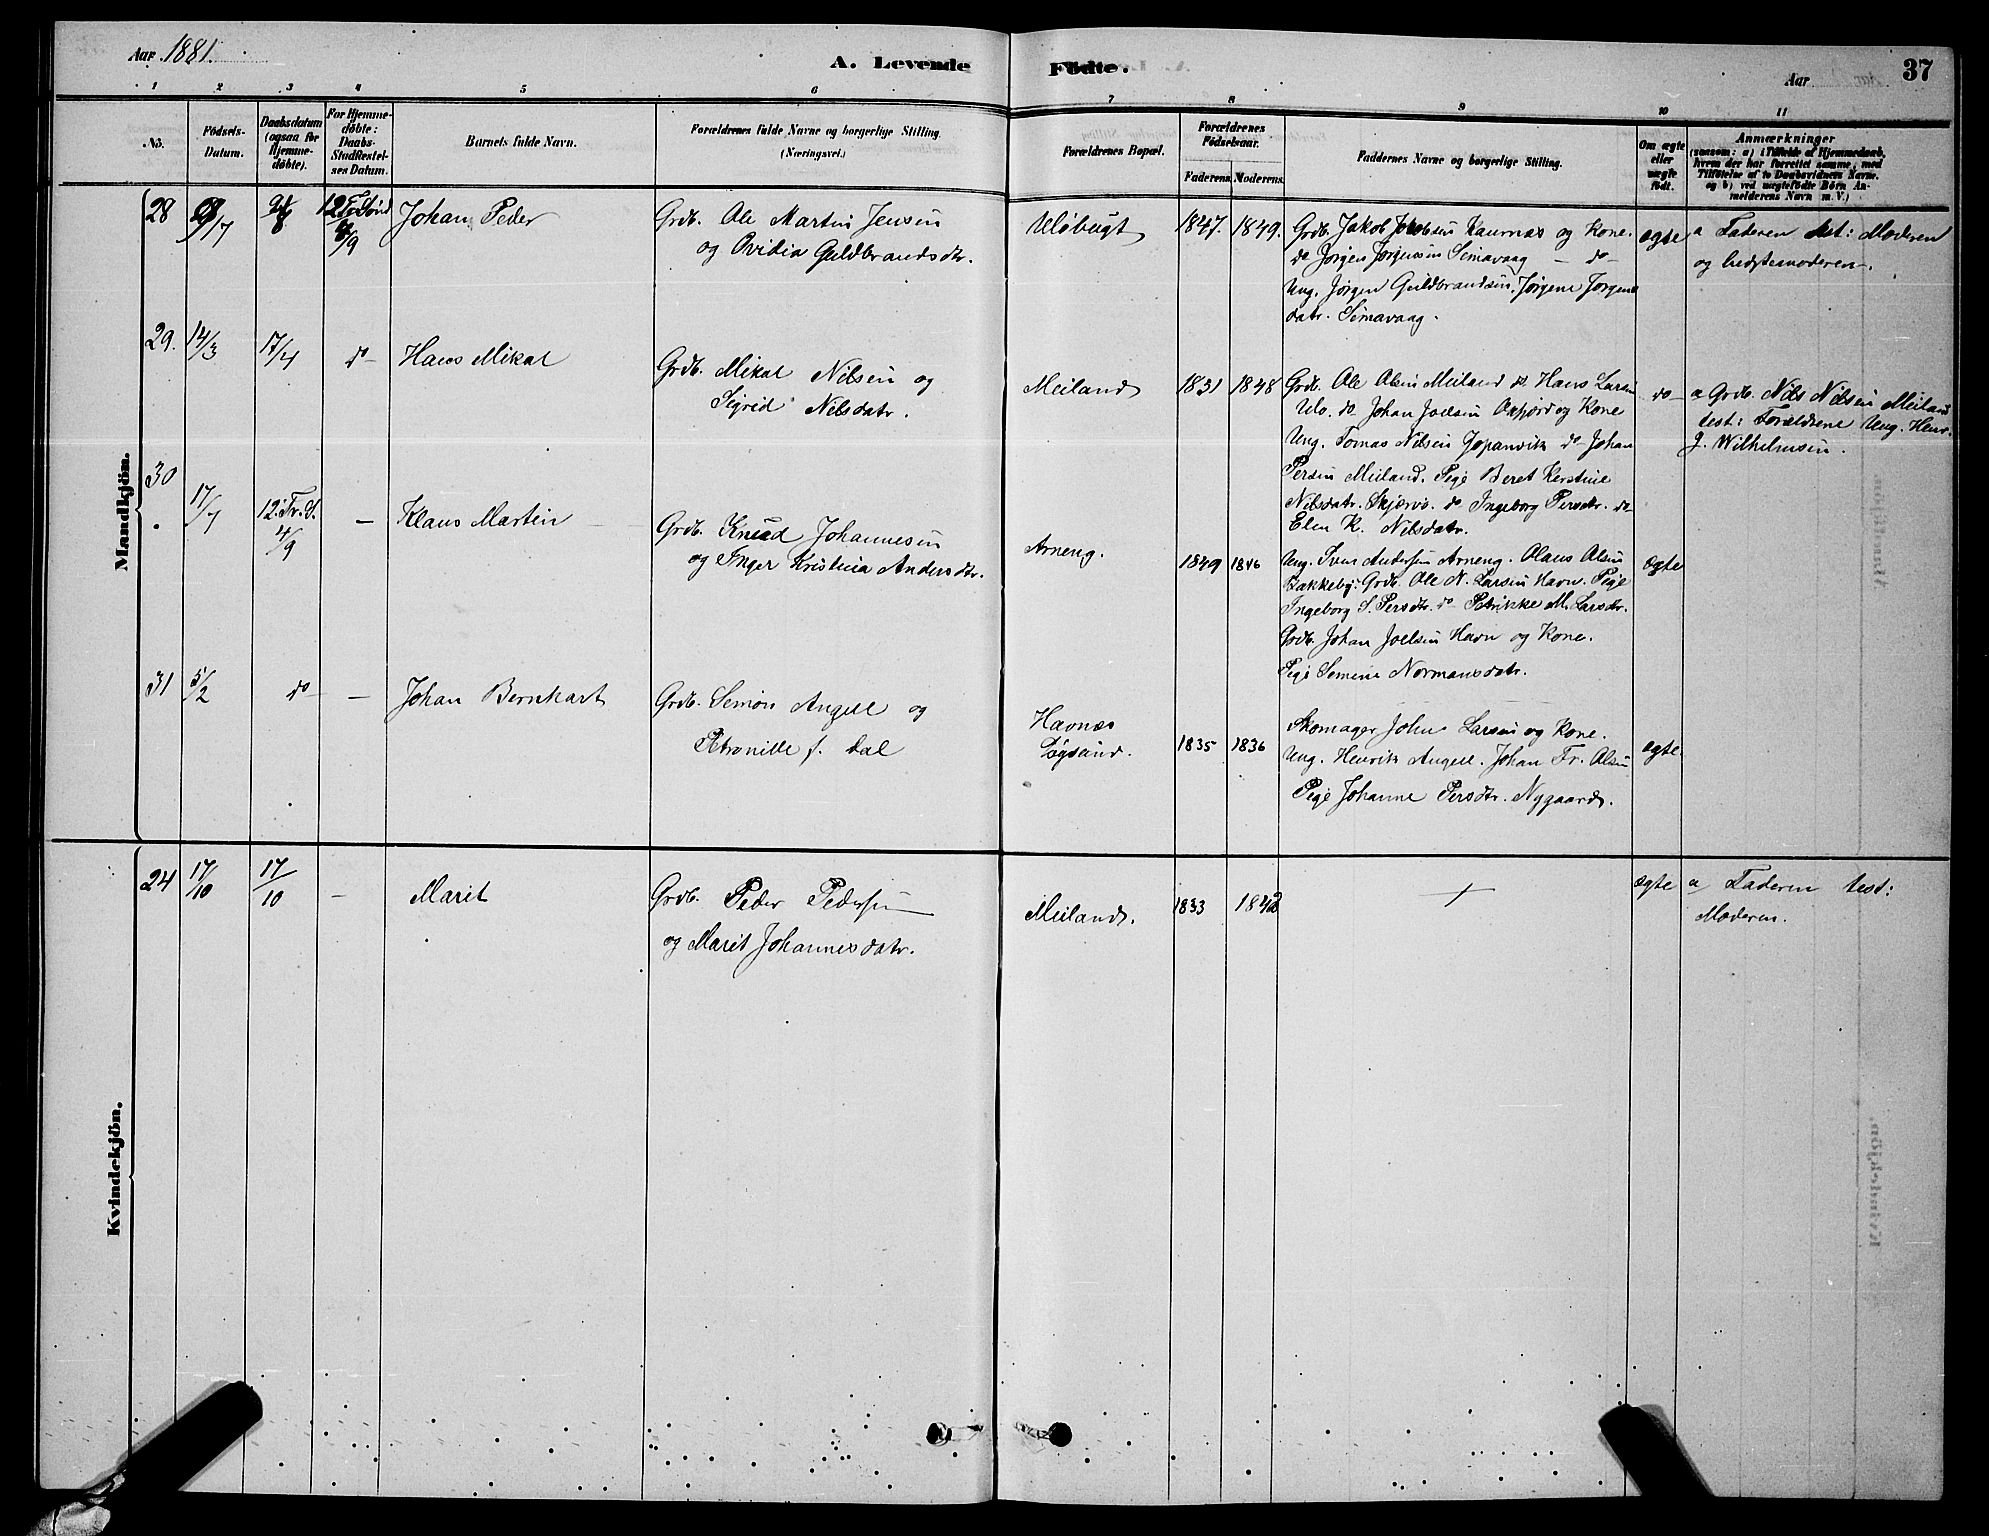 Aar 1881.
A. Levende Födte.
Aar
37
1 2 3 4 5 6 7 8 9 10 11
No.
Födsels-Datum.
Daabsdatum (ogsaa for Hjemme-döbte).
For Hjemme-döbte: Daabs-Stadfæstel-ses Datum.
Barnets fulde Navn.
Forældrenes fulde Navne og borgerlige Stilling. (Næringsvei.)
Forældrenes Bopæl.
Forældrenes Födselsaar.
Faderens. Moderens.
Faddernes Navne og borgerlige Stilling.
Om ægte eller uægte födt.
Anmærkninger
(saasom: a) i Tilfælde af Hjemmedaab, hvem der har forrettet samme, med Tilföielse af to Daabsvidners Navne, og b) ved uægtefödte Börn An-melderens Navn m. V.)
Mandkjön.
28
Johan Peder
Grdb. Ole Martin Jensen
og Ovidia Guldbrandsdtr.
Uløbugt
1847. 1849.
Grdb. Jakob Jakobsen Kaurnæs og Kone.
do Jørgen Jørgensen Simavaag - do -
Ung. Jørgen Guldbrandsen, Jørgene Jørgens
datr. Simavaag.
ægte
a Faderen test: Moderen
og bedstemoderen.
29. 14/3 17/4 do
Hans Mikal
Grdb. Mikal Nilsen og
Sigrid Nilsdatr.
Meiland
1831 1848
Grdb. Ole Olsen Meiland do Hans Larsen
Ulø. do Johan Joelsen Oxfjord og Kone
Ung. Tomas Nilsen Jopanvik do Johan
Persen Meiland. Pige Beret Kerstine
Nilsdatr. Skjervø. do Ingeborg Persdtr. do
Elen K. Nilsdatr.
do
a Grdb. Nils Nilsen Meiland
test: Forældrene Ung. Henr.
J. Wilhelmsen.
30 17/7 12. Tr. S. 4/9 -
Klaus Martin
Grdb. Knud Johannesen
og Inger Kristina Andersdtr.
Arneng.
1849 1846
Ung. Iver Andersen Arneng. Olaus Olsen
Bakkeby. Grdb. Ole N. Larsen Havn. Pige
Ingeborg S. Persdtr. do Petrikke M. Larsdtr.
Grdb. Johan Joelsen Havn og Kone.
Pige Semine Normansdatr.
ægte
31 5/2 do -
Johan Bernhart
Grdb. Simon Angell og
Petronille f. Dal
Havnæs
Løgsund.
1835 1836
Skomager John Larsen og Kone.
Ung. Henrik Angell. Johan Fr. Olsen
Pige Johanne Persdtr. Nygaard.
ægte
Kvindekjön.
24 17/10 17/10 -
Marit
Grdb. Peder Pedersen
og Marit Johannesdatr.
Meiland.
1833 1842
+
ægte
a Faderen test:
Moderen.